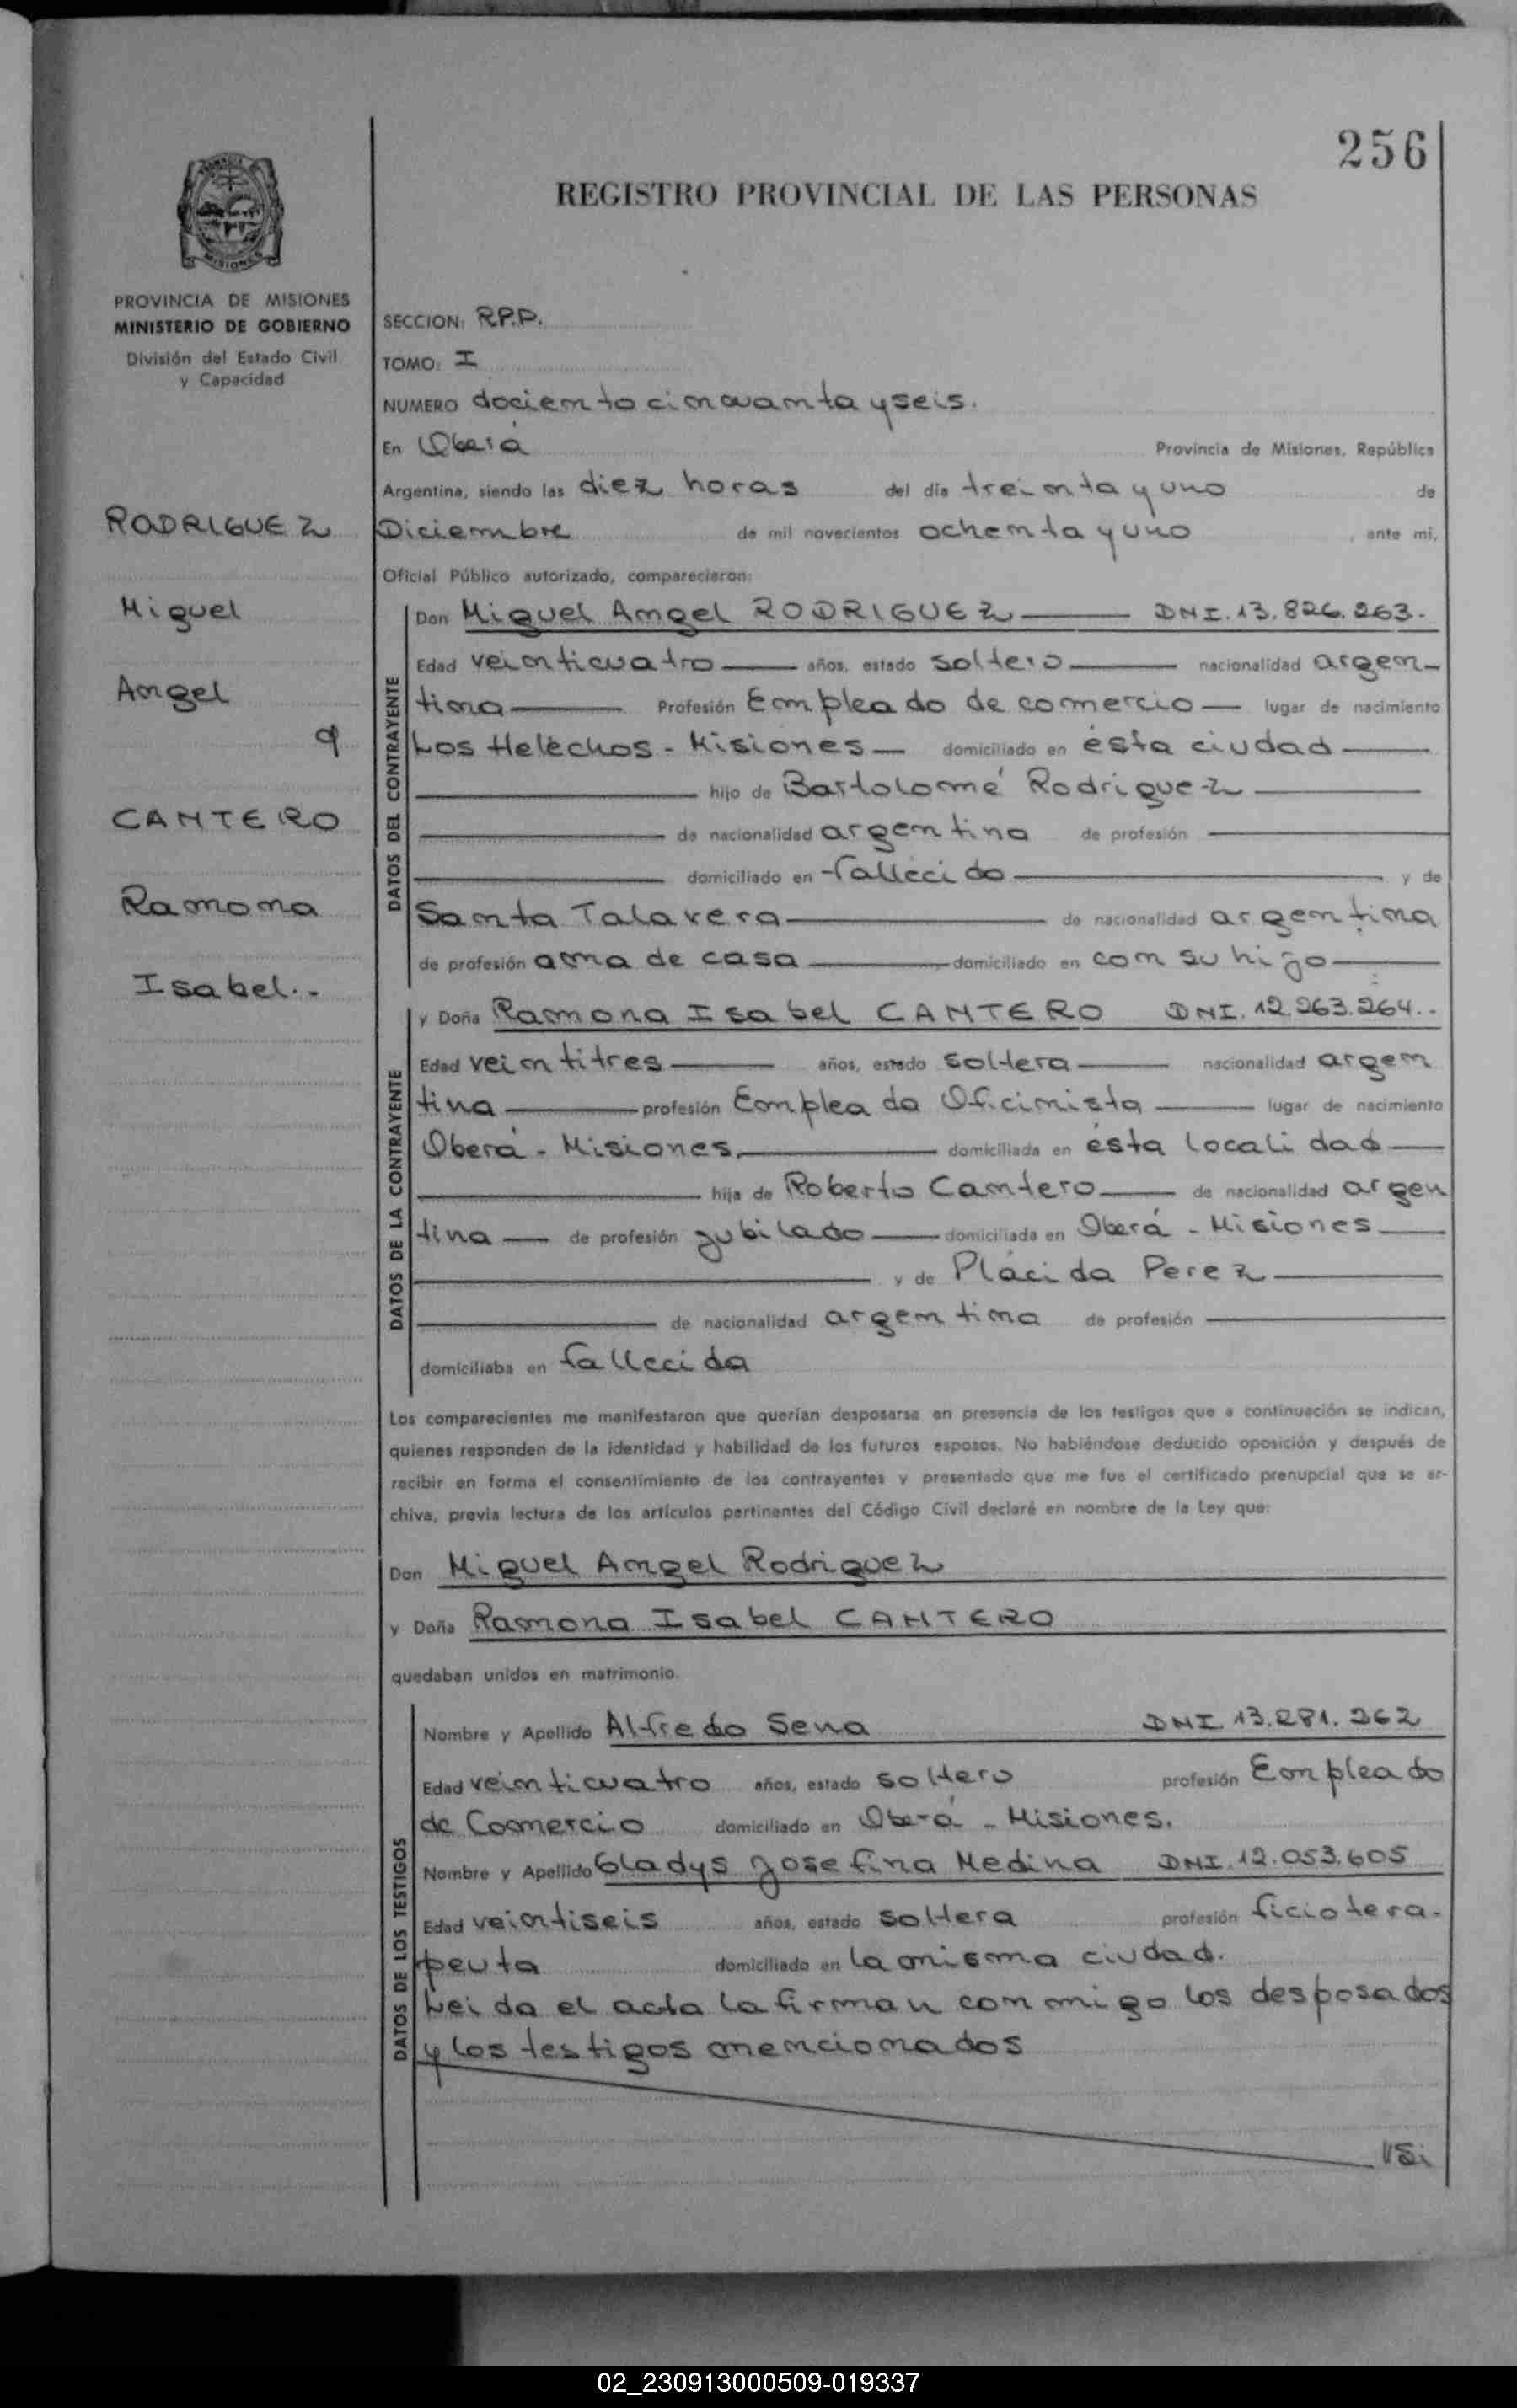 256
REGISTRO PROVINCIAL DE LAS PERSONAS
MISIONES
PROVINCIA DE MISIONES
MINISTERIO DE GOBIERNO
División del Estado Civil
y Capacidad
RODRIGUEZ
Miguel
Angel
q
CANTERO
Ramona
Isabel.-
SECCION: R.P.P.
TOMO: I
NUMERO dociento cincuanta y seis.
En Oberá Provincia de Misiones, República
Argentina, siendo las diez horas del día treinta y uno de
Diciembre de mil novecientos ochenta y uno, ante mi,
Oficial Público autorizado, comparecieron:
DATOS DEL CONTRAYENTE
Don Miguel Angel RODRIGUEZ DNI. 13.826.263.
Edad veinticuatro años, estado soltero nacionalidad argen-
tina Profesión Empleado de comercio lugar de nacimiento
Los Helechos - Misiones domiciliado en ésta ciudad
hijo de Bartolomé Rodriguez
de nacionalidad argentina de profesión
domiciliado en fallecido y de
Santa Talavera de nacionalidad argentina
de profesión ama de casa domiciliado en con su hijo
DATOS DE LA CONTRAYENTE
y Doña Ramona Isabel CANTERO DNI. 12.263.264..
Edad veintitres años, estado soltera nacionalidad argen
tina profesión Empleada Oficinista lugar de nacimiento
Oberá - Misiones. domiciliada en ésta localidad
hija de Roberto Cantero de nacionalidad argen
tina de profesión jubilado domiciliada en Oberá - Misiones
y de Plácida Perez
de nacionalidad argentina de profesión
domiciliaba en fallecida
Los comparecientes me manifestaron que querían desposarse en presencia de los testigos que a continuación se indican,
quienes responden de la identidad y habilidad de los futuros esposos. No habiéndose deducido oposición y después de
recibir en forma el consentimiento de los contrayentes y presentado que me fue el certificado prenupcial que se ar-
chiva, previa lectura de los artículos pertinentes del Código Civil declaré en nombre de la Ley que:
Don Miguel Angel Rodriguez
y Doña Ramona Isabel CANTERO
quedaban unidos en matrimonio.
DATOS DE LOS TESTIGOS
Nombre y Apellido Alfredo Sena DNI 13.281.262
Edad veinticuatro años, estado soltero profesión Empleado
de Comercio domiciliado en Oberá - Misiones.
Nombre y Apellido Gladys Josefina Medina DNI. 12.053.605
Edad veintiseis años, estado soltera profesión ficiotera-
peuta domiciliado en la misma ciudad.
Leida el acta la firman conmigo los desposados
y los testigos mencionados
02_230913000509-019337